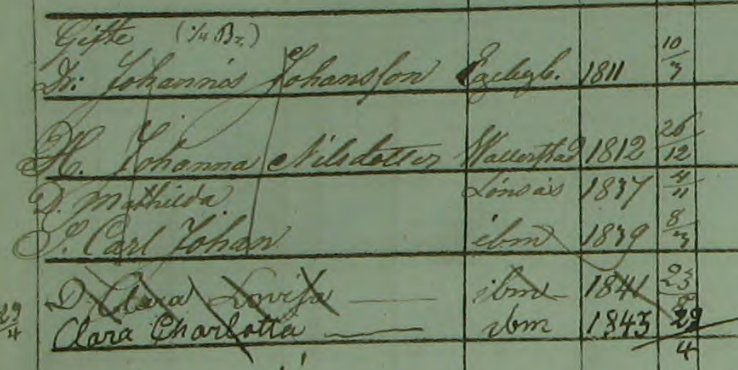 Gifte (1/4 Br.)
Dr: Johannes Johansson 1811 10/3
H. Johanna Nilsdotter Wallerstad 1812 26/12
D. Mathilda Lönsås 1837 4/11
S. Carl Johan ibm 1839 8/3
D. Clara Lovisa ibm 1841 23/8
29/4 Clara Charlotta ibm 1843 29/4